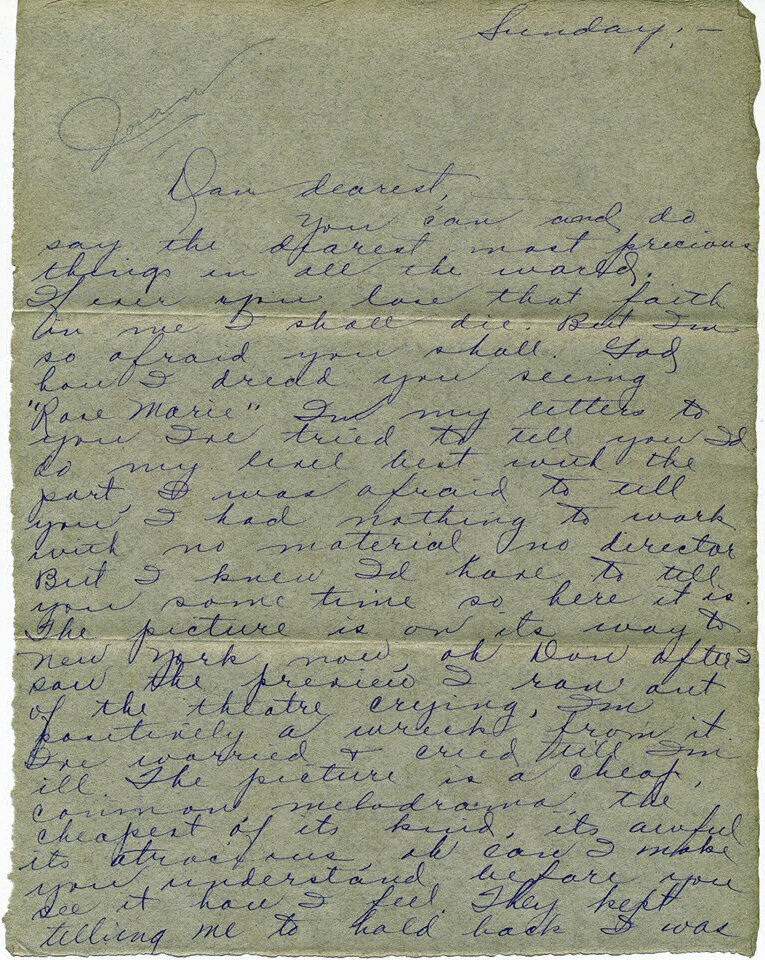 Sunday:-
Joan
Dan dearest,
You can and do
say the dearest most precious
things in all the world.
If ever you lose that faith
in me I shall die. But I'm
so afraid you shall. God
how I dread you seeing
"Rose Marie" In my letters to
you I've tried to tell you I'd
do my level best with the
part, I was afraid to tell
you I had nothing to work
with no material no director
But I knew I'd have to tell
you some time so here it is.
The picture is on its way to
New York now, oh Dan after I
saw the preview I ran out
of the theatre crying, I'm
positively a wreck from it
I've worried & cried till I'm
ill. The picture is a cheap,
common, melodrama, the
cheapest of its kind, its awful
its atrocious, oh can I make
you understand before you
see it how I feel. They kept
telling me to hold back I was